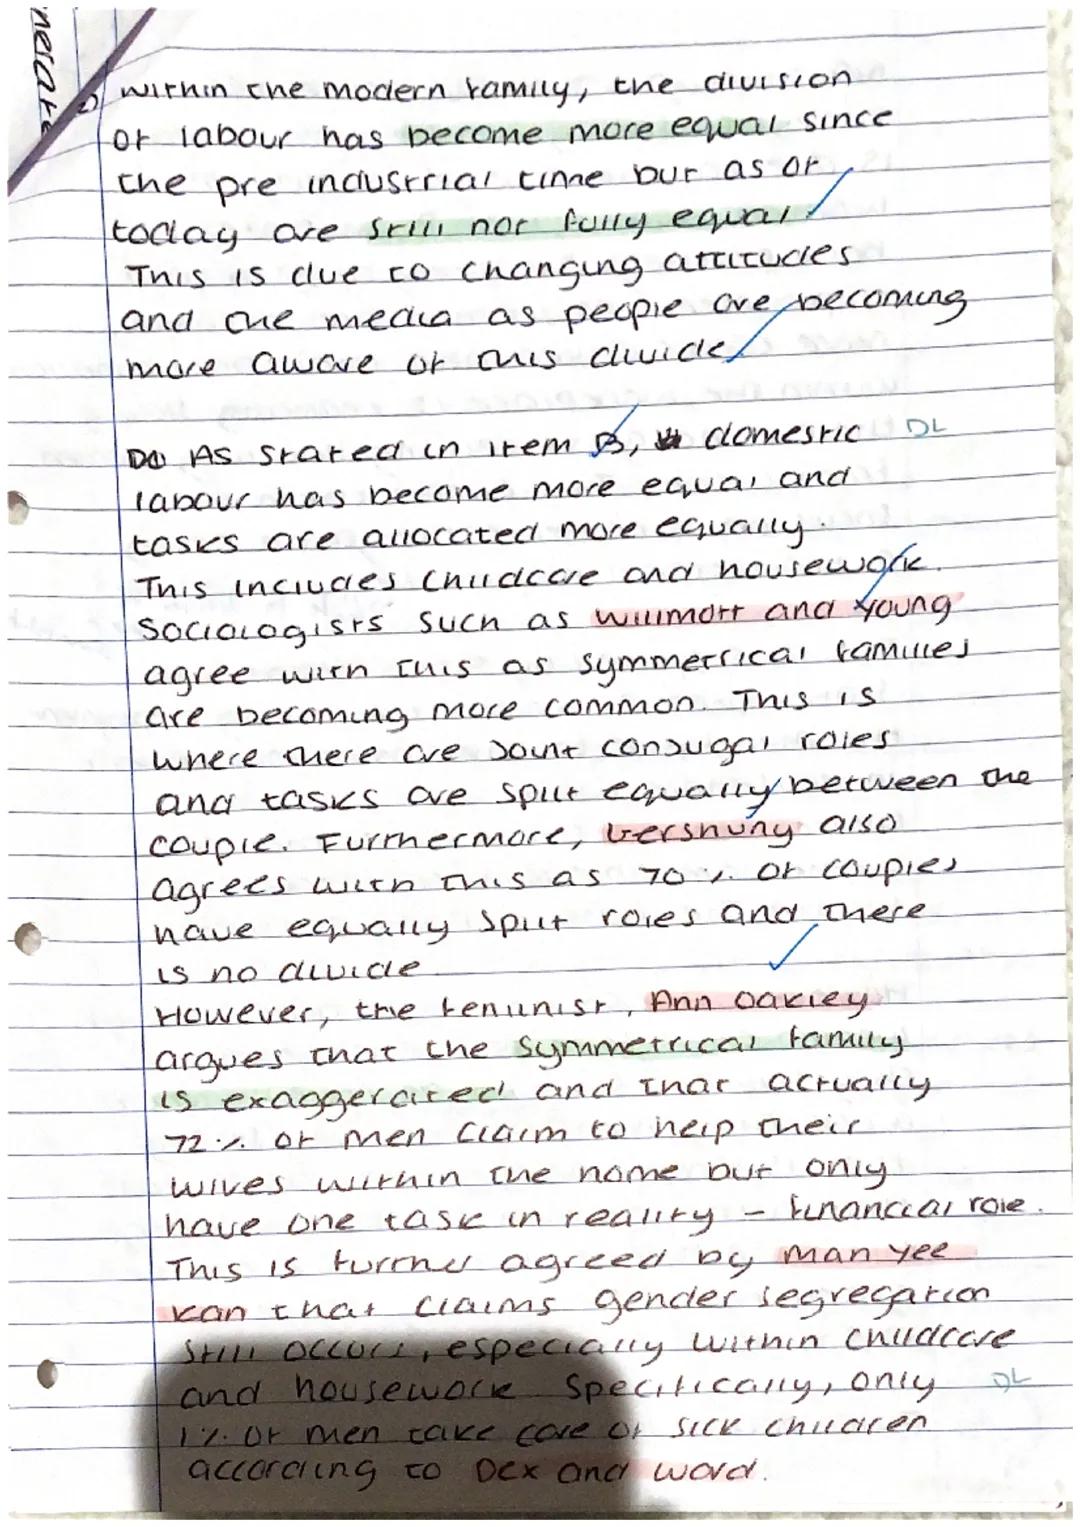 within the modern family, the division
of labour has become more equal since
the pre industrial time but as of
today are still not fully equal.
This is due to changing attitudes
and the media as people are becoming
more aware of this divide.
As stated in item B, domestic DL
labour has become more equal and
tasks are allocated more equally.
This includes childcare and housework.
Sociologists such as Willmott and Young
agree with this as symmetrical families
are becoming more common. This is
where there are joint conjugal roles
and tasks are split equally between the
couple. Furthermore, Gershuny also
agrees with this as 70% of couples
have equally split roles and there
is no divide
However, the feminist, Ann Oakley
argues that the symmetrical family
is exaggerated and that actually
72% of men claim to help their
wives within the home but only
have one task in reality - financial role.
This is further agreed by Man Yee
Kan that claims gender segregation
still occurs, especially within childcare
and housework Specifically, only DL
1% of men take care of sick children
according to Dex and Ward.